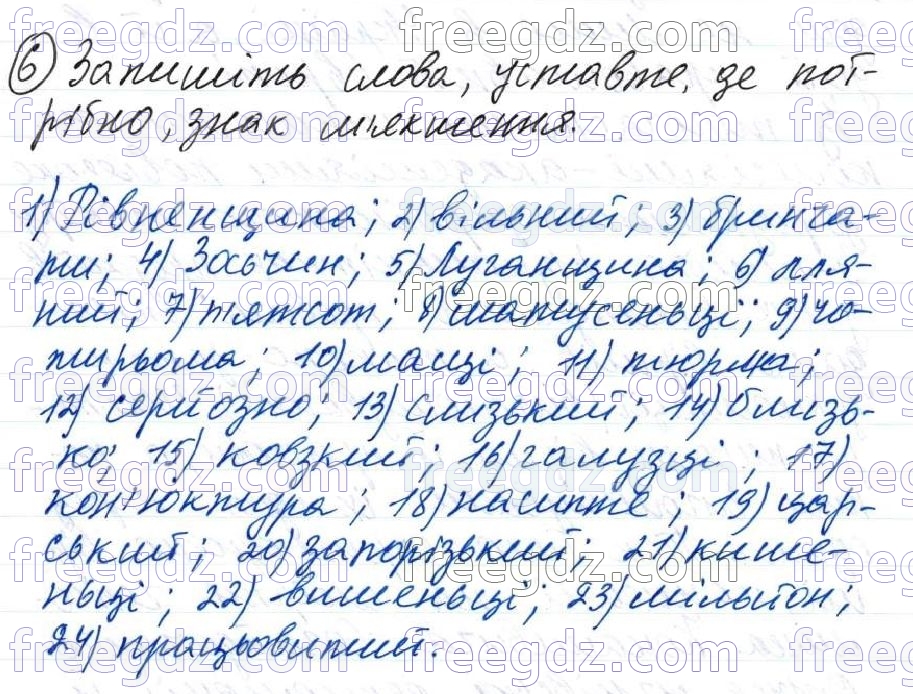 6 Запишіть слова, уставте, де пот-
рібно, знак м'якшення.
1) Рівненщина; 2) вільний; 3) бринча-
ри; 4) Зосьчин; 5) Луганщина; 6) лля-
ний; 7) п'ятсот; 8) матусеньці; 9) чо-
тирьома; 10) маці; 11) тюрма;
12) серйозно; 13) слизький; 14) близь-
ко; 15) ковзкий; 16) галузці; 17)
кон'юктура; 18) насипте; 19) цар-
ський; 20) запорізький; 21) кише-
ньці; 22) вишеньці; 23) мільйон;
24) працьовитий.
freegdz.com